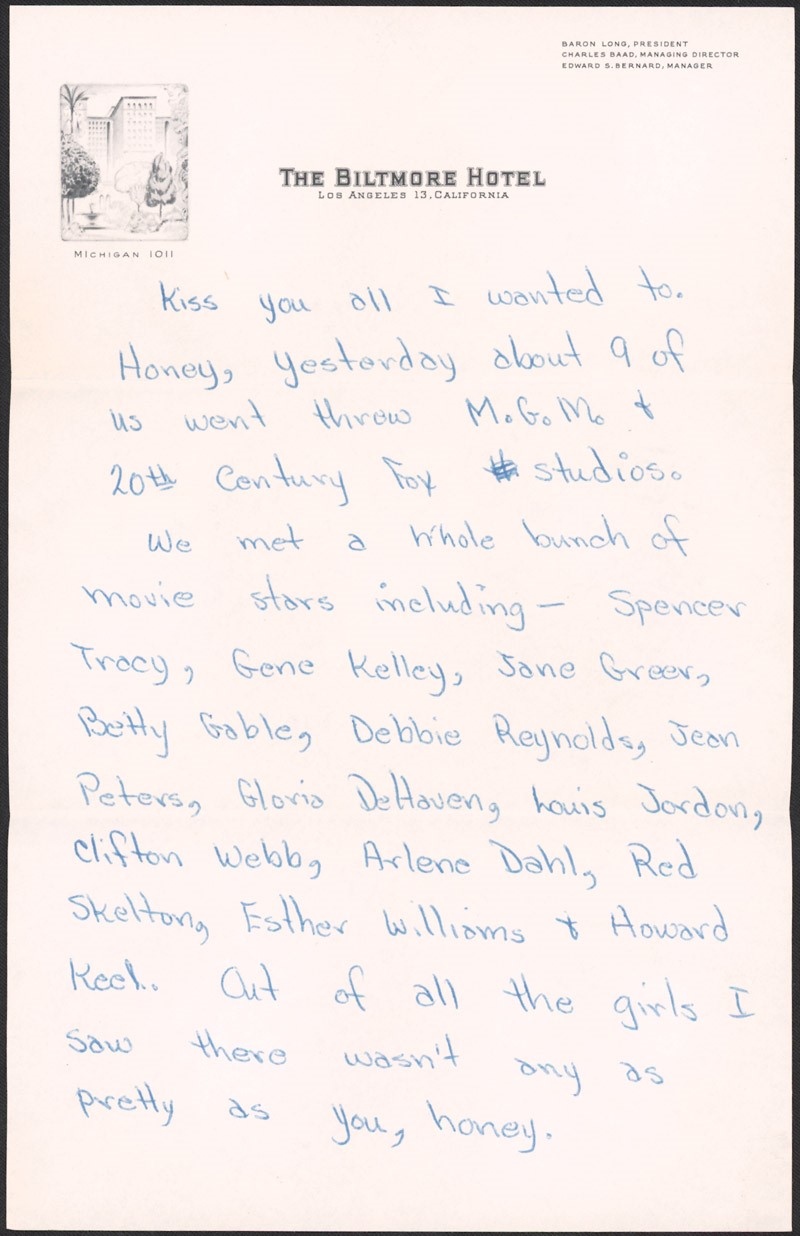 BARON LONG, PRESIDENT
CHARLES BAAD, MANAGING DIRECTOR
EDWARD S. BERNARD, MANAGER
THE BILTMORE HOTEL
LOS ANGELES 13, CALIFORNIA
MICHIGAN 1011
Kiss you all I wanted to.
Honey, yesterday about 9 of
us went threw M.G.M. &
20th Century Fox studios.
We met a whole bunch of
movie stars including — Spencer
Tracy, Gene Kelley, Jane Greer,
Betty Gable, Debbie Reynolds, Jean
Peters, Gloria DeHaven, Louis Jordon,
Clifton Webb, Arlene Dahl, Red
Skelton, Esther Williams & Howard
Keel. Out of all the girls I
saw there wasn't any as
pretty as you, honey.